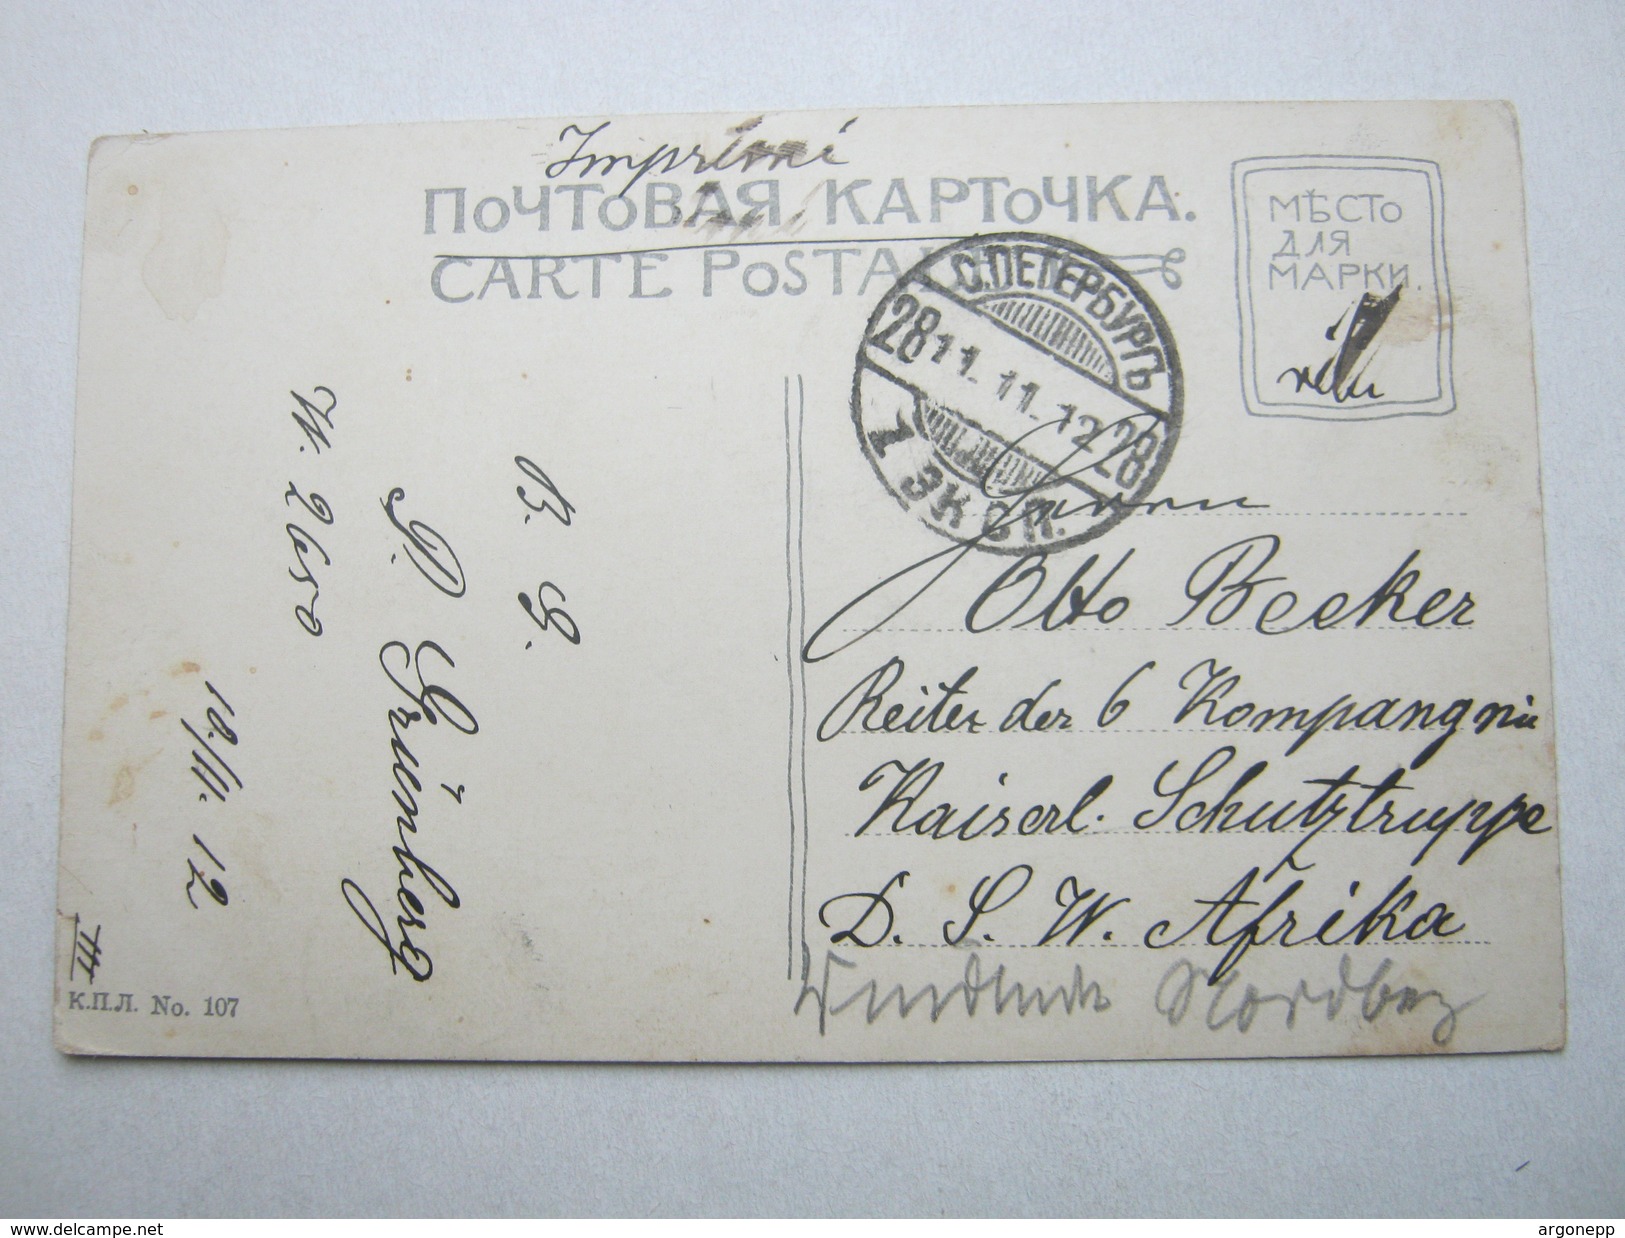 Imprimé
ПОЧТОВАЯ КАРТОЧКА.
CARTE POSTALE
МѢСТО
ДЛЯ
МАРКИ.
С.ПЕТЕРБУРГЪ
28 11.11.12 28
1 ЭКСП.
Herrn
Otto Becker
Reiter der 6 Kompangnie
Kaiserl. Schutztruppe
D. S. W. Afrika
Windhuk Nordbez
B. G.
P. Grünberg
W. 2650
10./11. 12
К.П.Л. No. 107
delcampe.net
argonepp